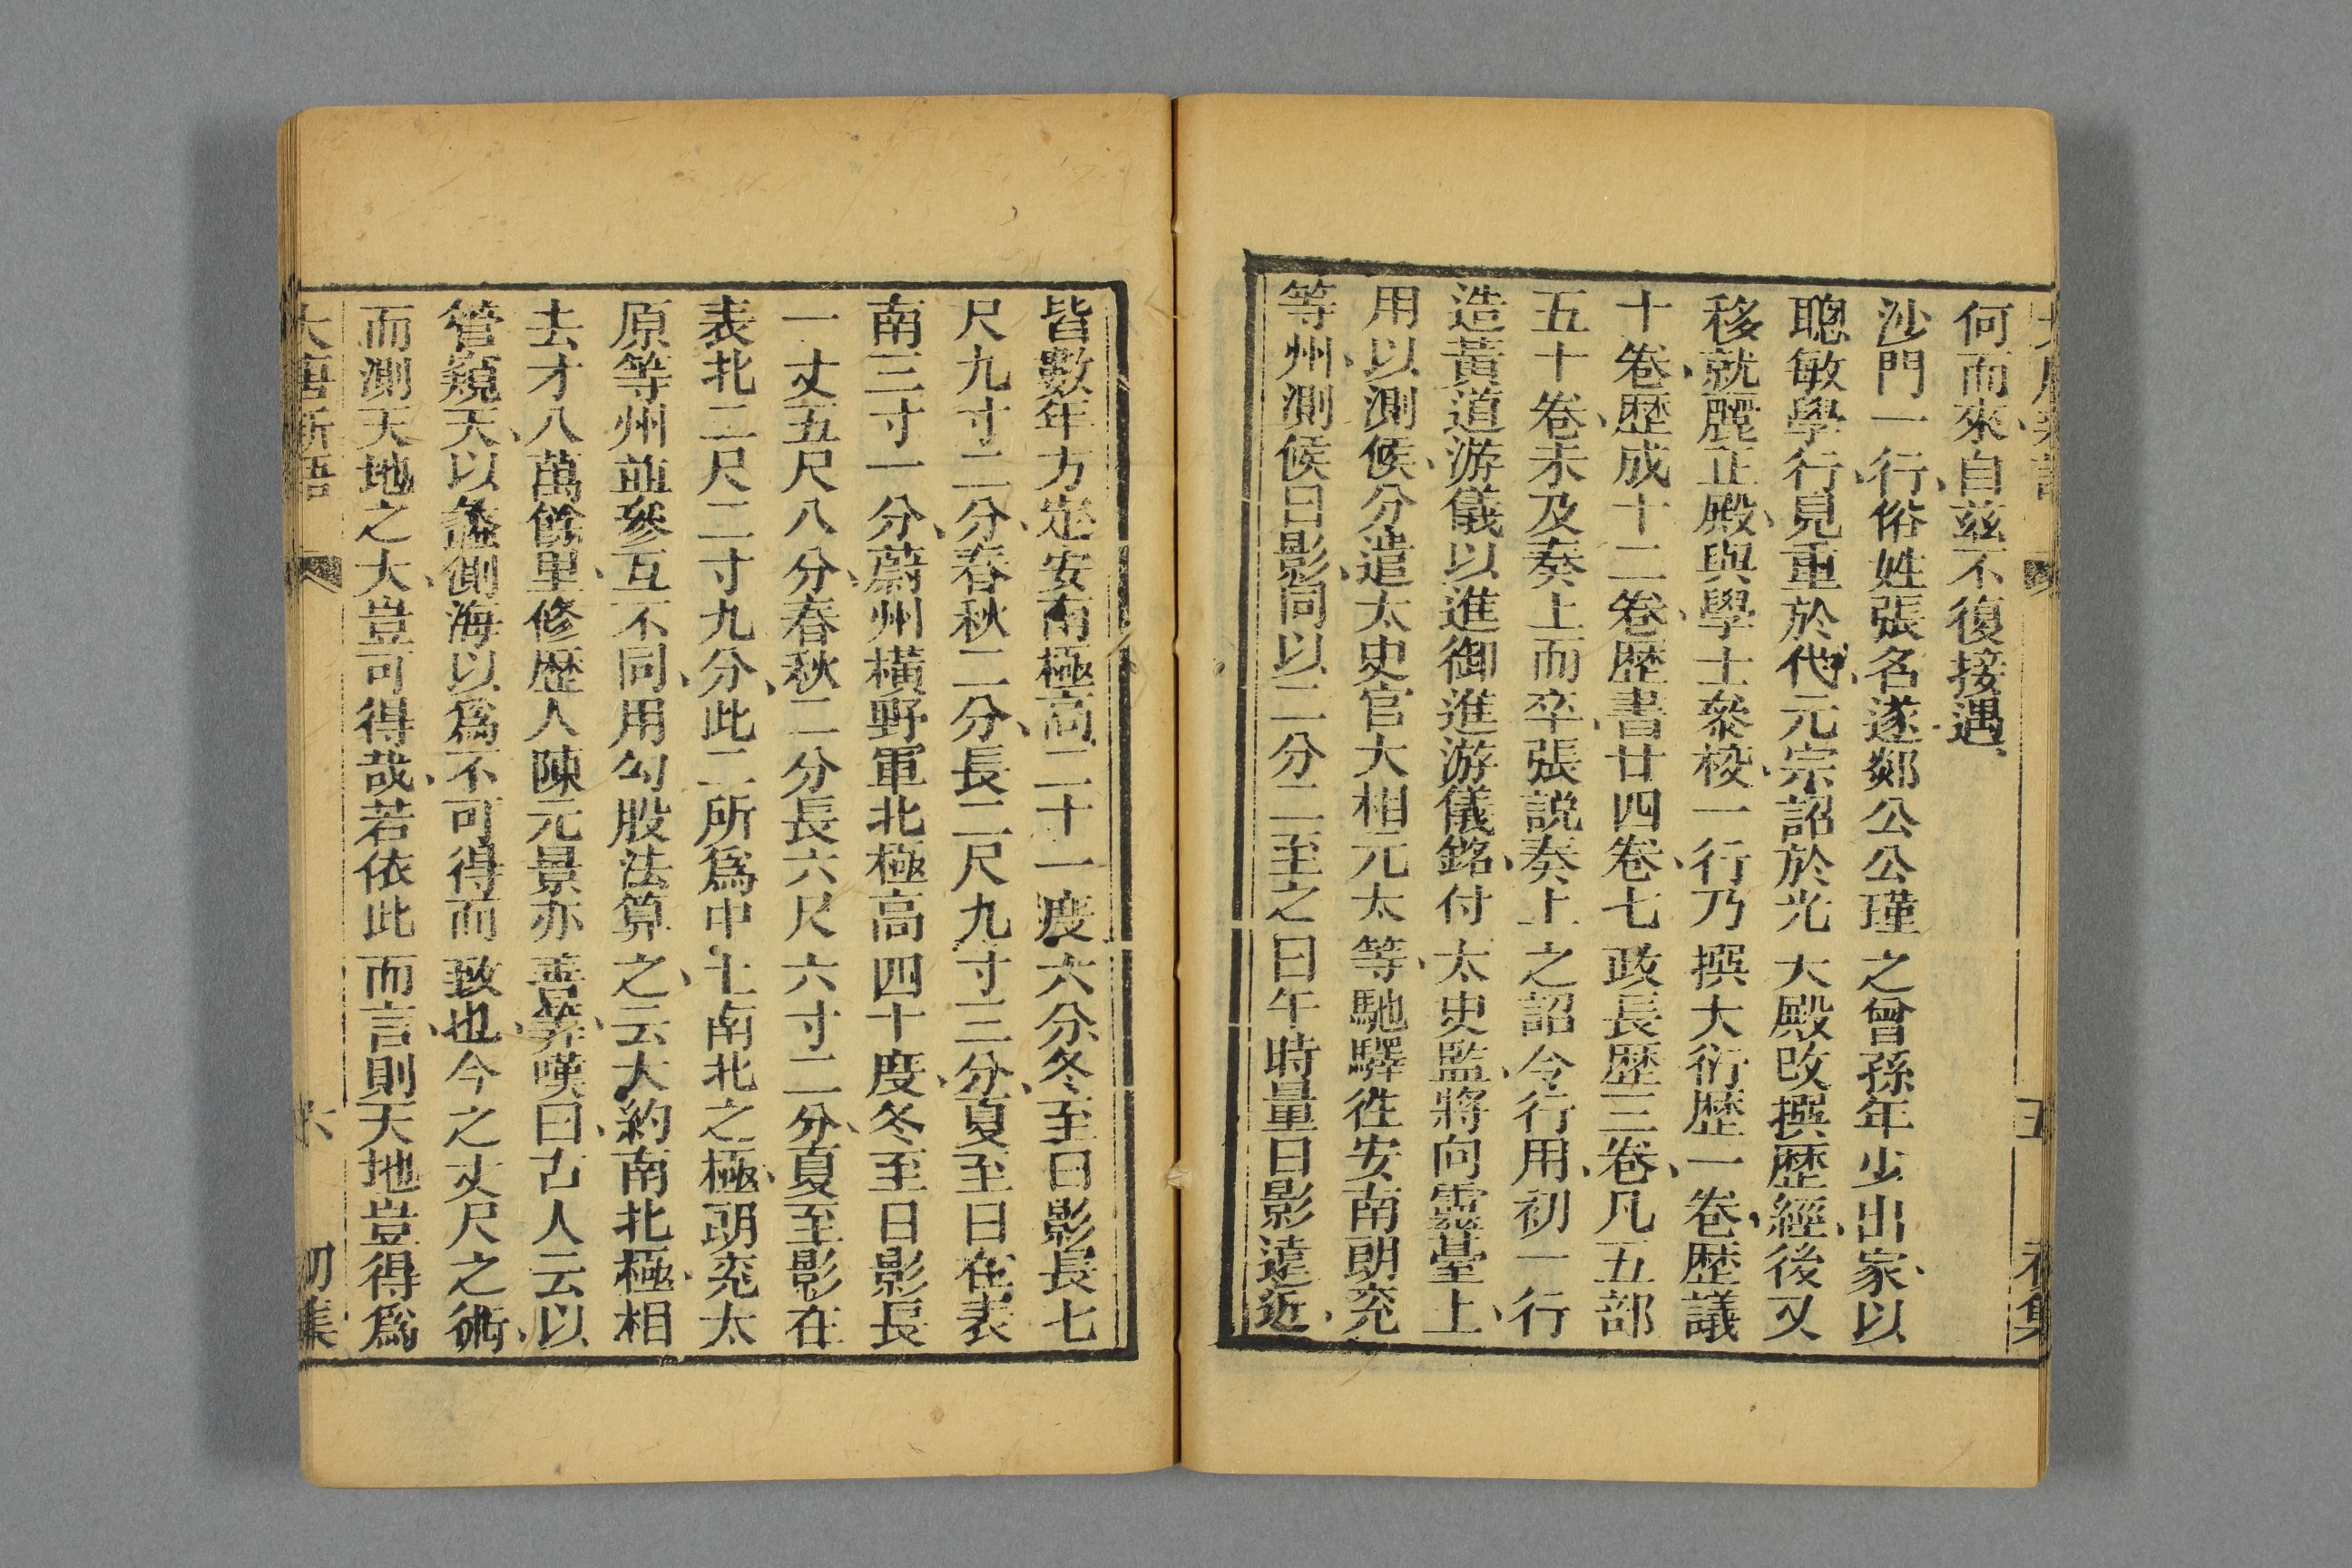 何而來自兹不復接遇
沙門一行俗姓張名遂郯公公瑾之曾孫年少出家以
聰敏學行見重於代元宗詔於光大殿改撰歴經後又
移就麗正殿與學士叅校一行乃撰大衍歴一卷歴議
十卷歴成十二卷歴書廿四卷七政長歴三卷凡五部
五十卷未及奏上而卒張説奏上之詔令行用初一行
造黃道游儀以進御進游儀銘付太史監將向靈臺上
用以測候分遣太史官大相元太等馳驛徃安南朗兖
等州測候日影同以二分二至之日午時量日影遠近
五
皆數年方定安南極高二十一度六分冬至日影長七
尺九寸二分春秋二分長二尺九寸三分夏至日在表
南三寸一分蔚州橫野軍北極高四十度冬至日影長
一丈五尺八分春秋二分長六尺六寸二分夏至影在
表北二尺二寸九分此二所為中土南北之極朗兖太
原等州並叅互不同用勾股法算之云大約南北極相
去才八萬餘里修歴人陳元景亦善算嘆曰古人云以
管窺天以蠡測海以為不可得而致也今之丈尺之術
而測天地之大豈可得哉若依此而言則天地豈得為
大唐新語 六 初集